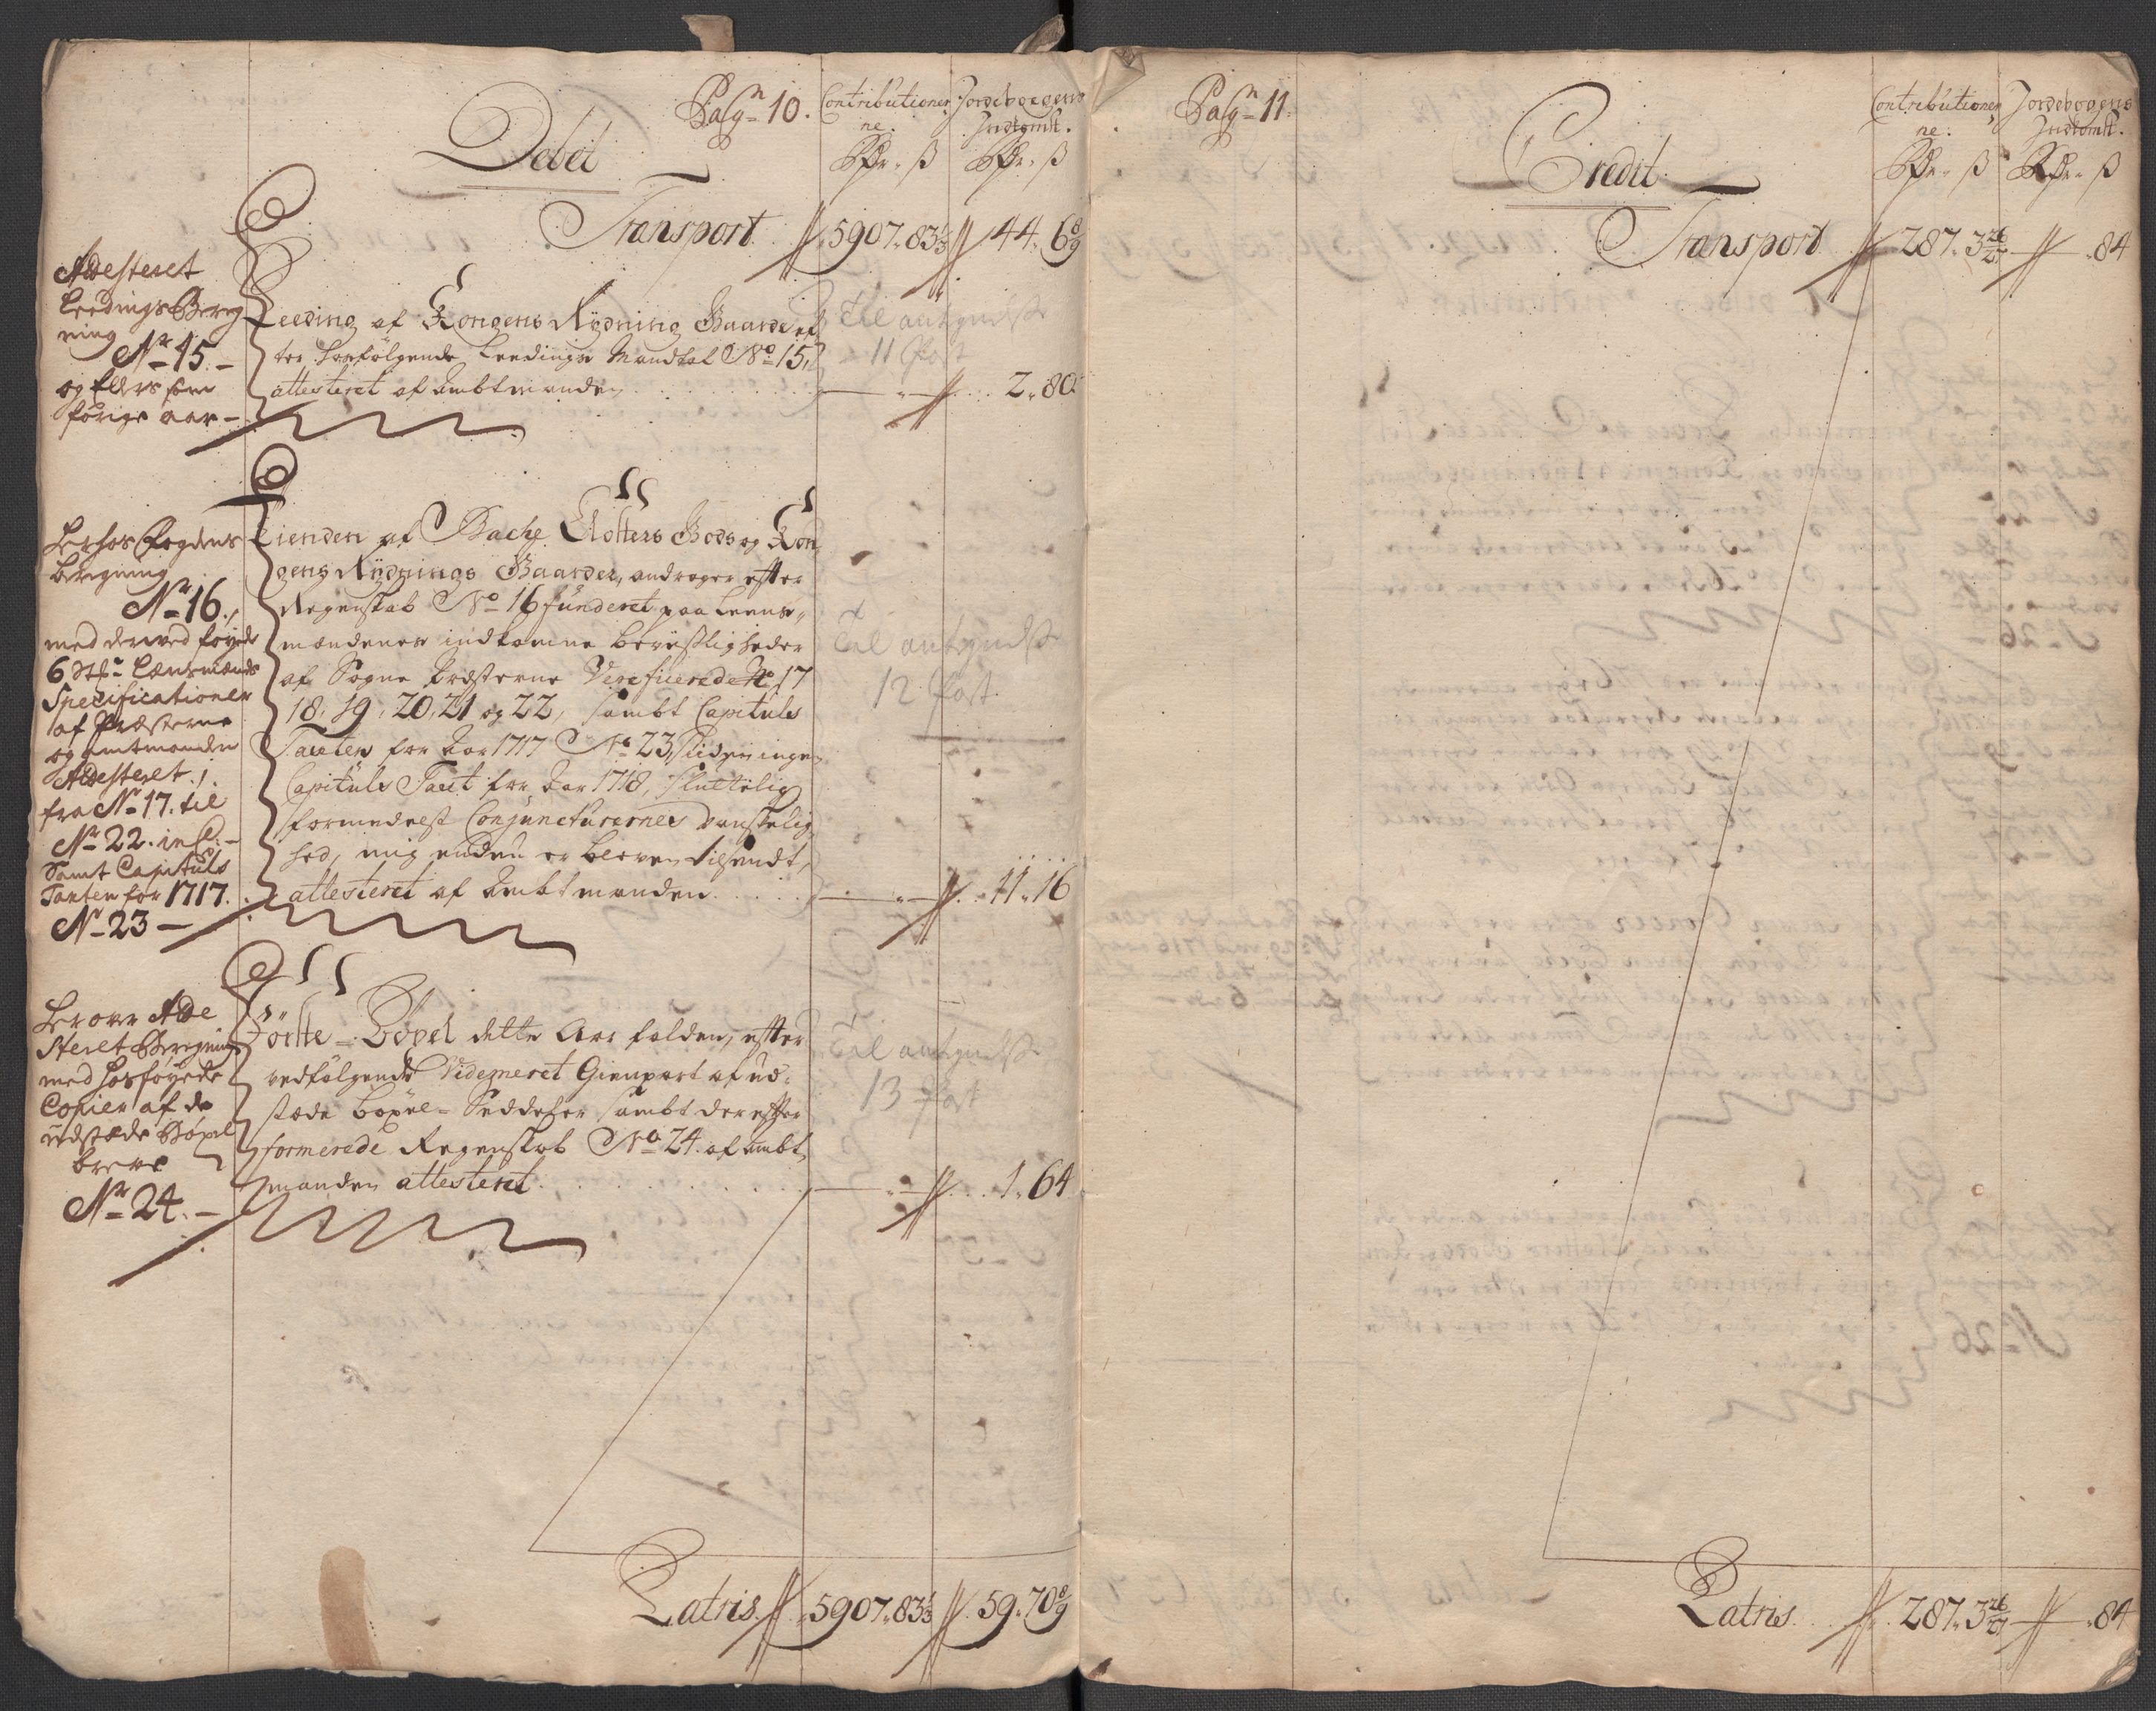 Pag: 10.
Contributioner
ne.
Rdr. ß
Jordebogens
Indkomst.
Rdr. ß
Debet
Transport 5907. 83 1/3 44. 6 8/9
Attesteret
Leedings Bereg
ning
No 15.
og Ellers som
forige aar
Leeding af Kongens Rydning Gaarde ef
ter hosfølgende Leedings Mandtal No 15,
attesteret af Ambtmanden
Til antegnelse
11 Post
2. 80
Herhos Fogdens
beregning
No 16.
med derved føyede
6 Stk. Lænsmænds
Specificationer
af Præsterne
og amtmanden
Attesteret
fra No 17. til
No 22. incl.
Samt Capituls
Taxten for 1717.
No 23
Tienden af Bache Klosters Gods og Kon
gens Rydnings Gaarder, andrager efter
Regenskab No 16 funderet paa Leens-
mændenes indkomne bevisligheder
af Sogne Præsterne Verificerede No 17
18, 19, 20, 21 og 22, sambt Capituls
Taxten for Aar 1717 No 23, siden ingen
Capituls Taxt for Aar 1718, sluttelig
formedelst Conjuncturernes vanskelig
hed, mig endnu er bleven tilsendt,
attesteret af Ambtmanden
Til antegnelse
12. Post.
11. 16
Herover Atte
steret Beregning
med hosføyede
Copier af de
udstæde Bøxel
breve
No 24.
Förste Böxel dette Aar falden, efter
vedfølgende Videmeret Gienpart af ud-
stæde boxel Seddeler sambt derefter
formerede Regenskab No 24. af Ambt
manden attesteret
Til antegnelse
13 Post
1. 64
Latris 5907. 83 1/3 59. 70 8/9
Pag: 11.
Contributioner
ne.
Rdr. ß
Jordebogens
Indkomst.
Rdr. ß
Credit
Transport 287. 3 26/27 84
Latris 287. 3 26/27 84